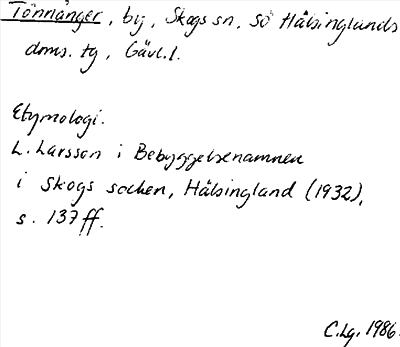 Tönnånger, by, Skogs sn, Sö Hälsinglands
doms. tg, Gävl.l.
Etymologi.
L. Larsson i Bebyggelsenamnen
i Skogs socken, Hälsingland (1932),
s. 137 ff.
C.Lg. 1986.